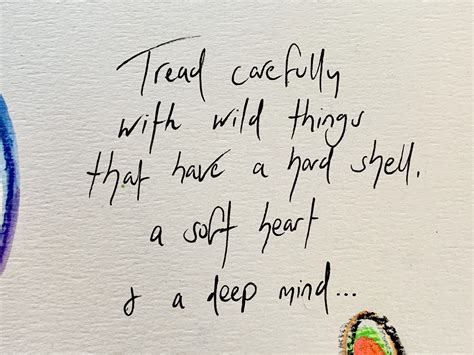 Tread carefully
with wild things
that have a hard shell,
a soft heart
& a deep mind...